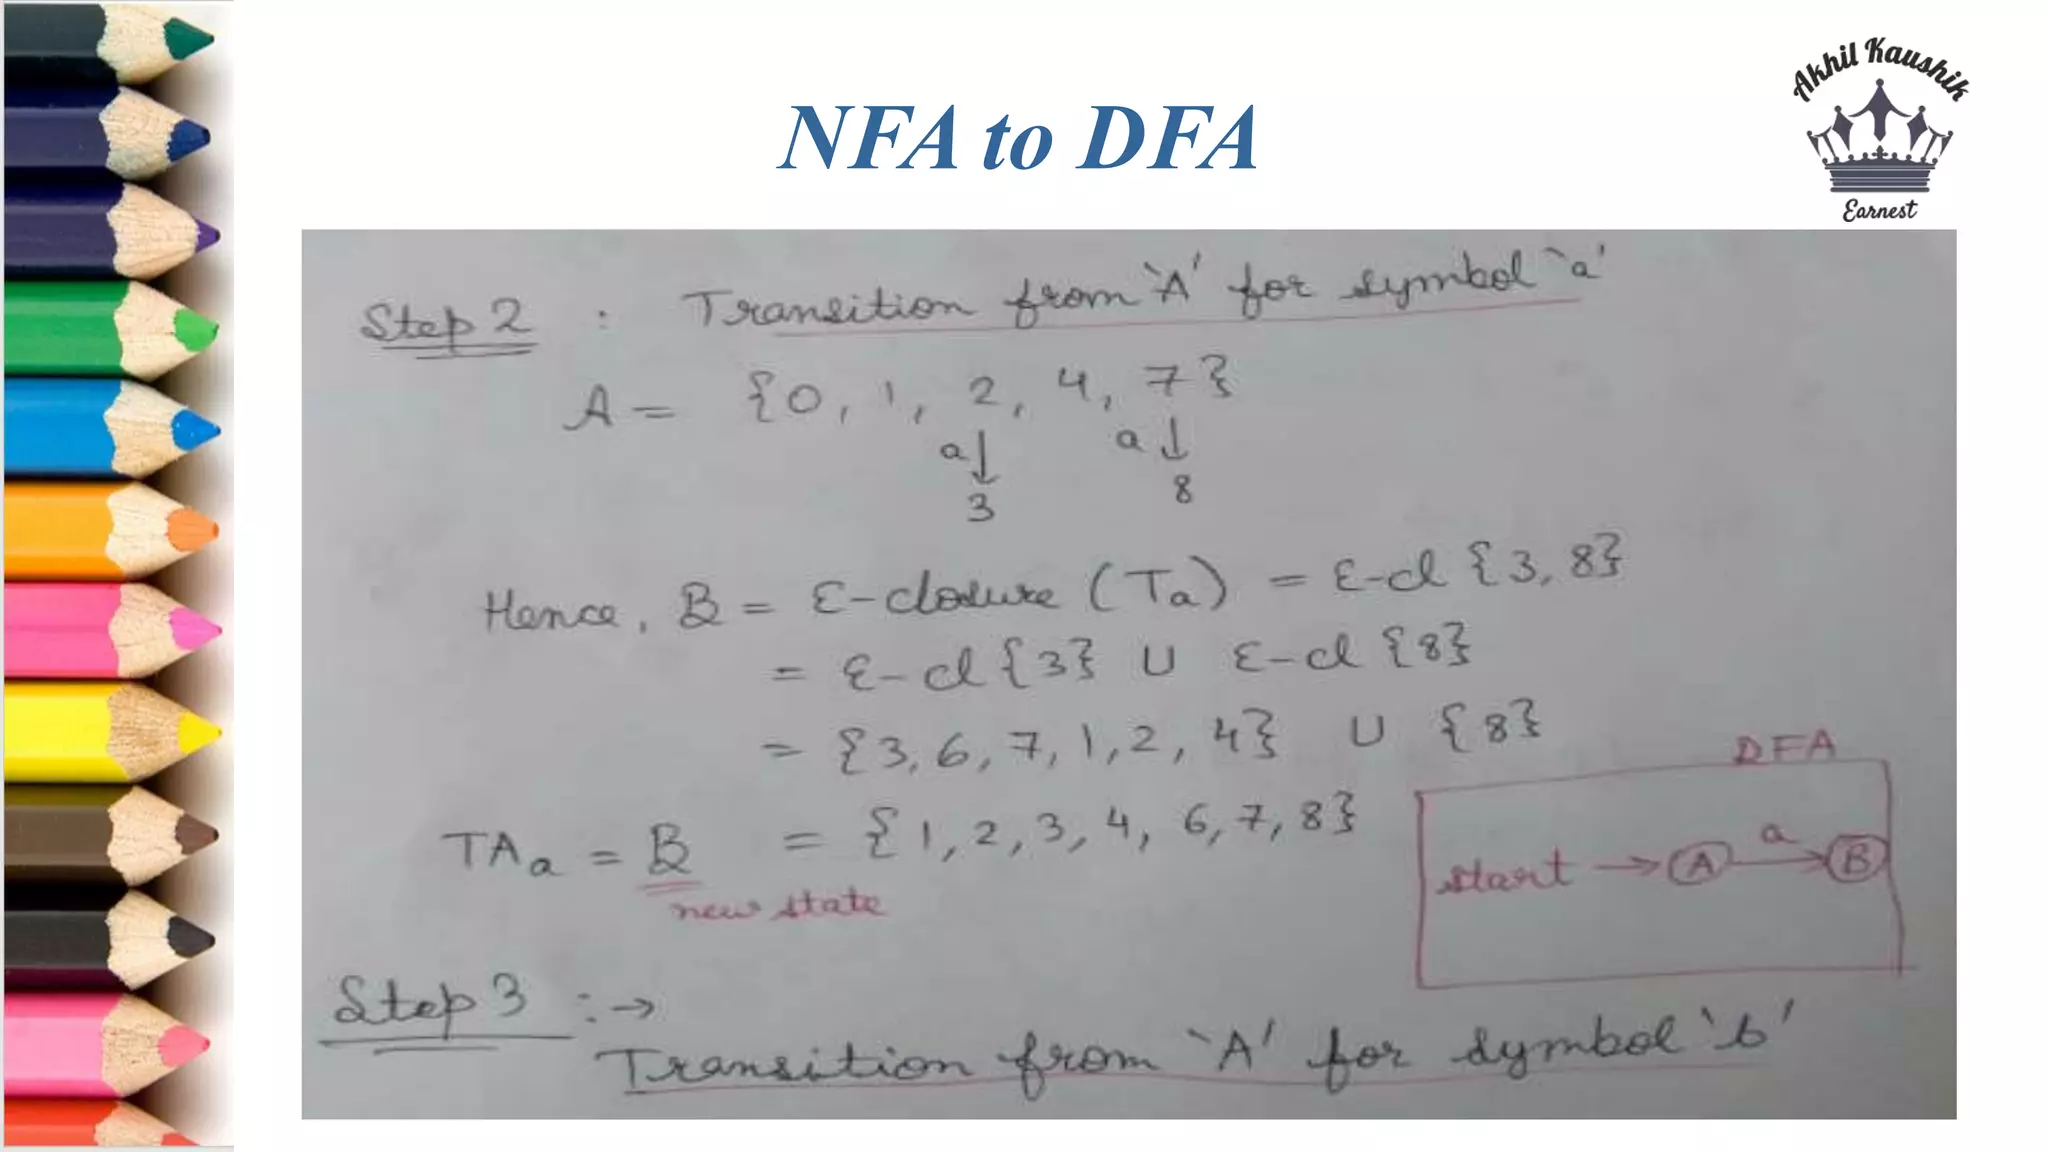 Akhil Kaushik
Earnest
NFA to DFA
Step 2 : Transition from 'A' for symbol 'a'
A = {0, 1, 2, 4, 7}
a↓ a↓
3 8
Hence, B = ε-closure (Ta) = ε-cl {3, 8}
= ε-cl {3} ∪ ε-cl {8}
= {3, 6, 7, 1, 2, 4} ∪ {8}
TAa = B = {1, 2, 3, 4, 6, 7, 8}
new state
DFA
start → A a → B
Step 3 :→
Transition from 'A' for symbol 'b'